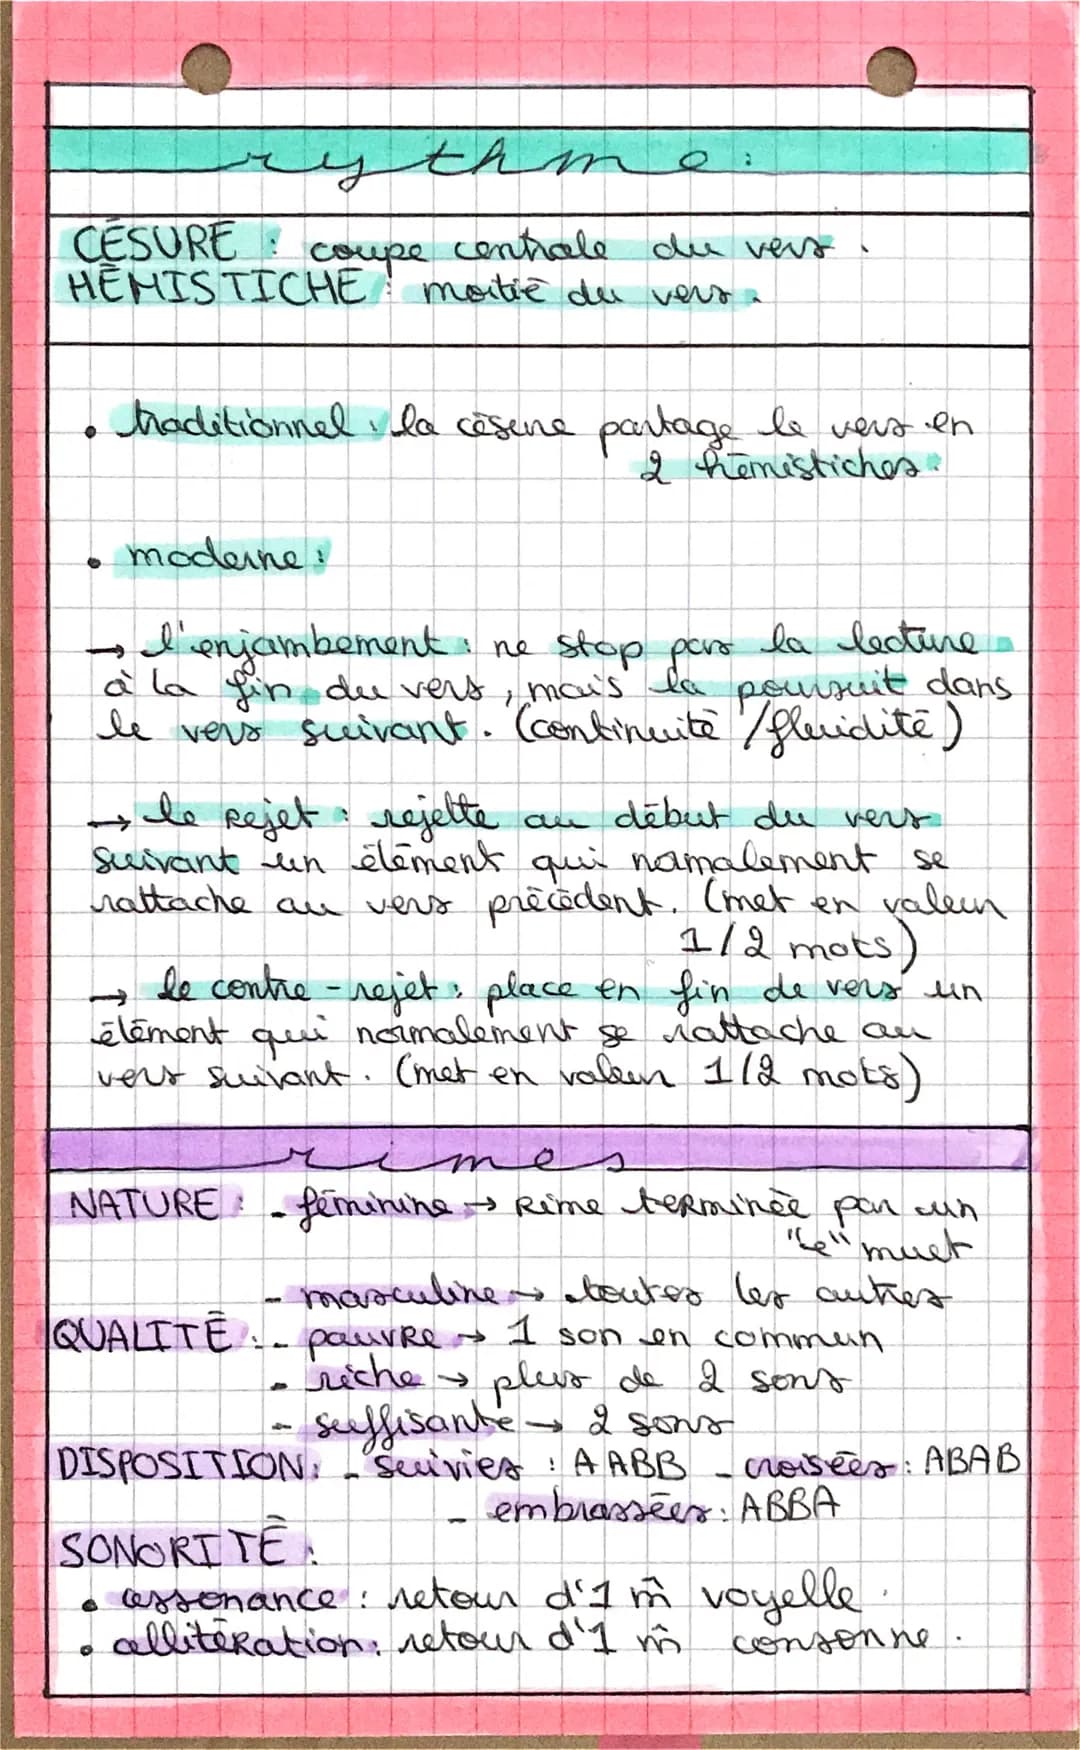 rythme :
CÉSURE : coupe centrale du vers.
HÉMISTICHE : moitié du vers.
• traditionnel : la césure partage le vers en
2 hémistiches.
• moderne :
→ l'enjambement : ne stop pas la lecture
à la fin du vers, mais la poursuit dans
le vers suivant. (continuité /fluidité)
→ le rejet : rejette au début du vers
suivant un élément qui normalement se
rattache au vers précédent. (met en valeur
1/2 mots)
→ le contre-rejet : place en fin de vers un
élément qui normalement se rattache au
vers suivant. (met en valeur 1/2 mots)
rimes
NATURE : - féminine → Rime terminée par un
"e" muet
- masculine → toutes les autres
QUALITÉ : - pauvre → 1 son en commun
- riche → plus de 2 sons
- suffisante → 2 sons
DISPOSITION : - suivies : AABB - croisées : ABAB
- embrassées : ABBA
SONORITÉ :
• assonance : retour d'1 m̂ voyelle.
• allitération : retour d'1 m̂ consonne.